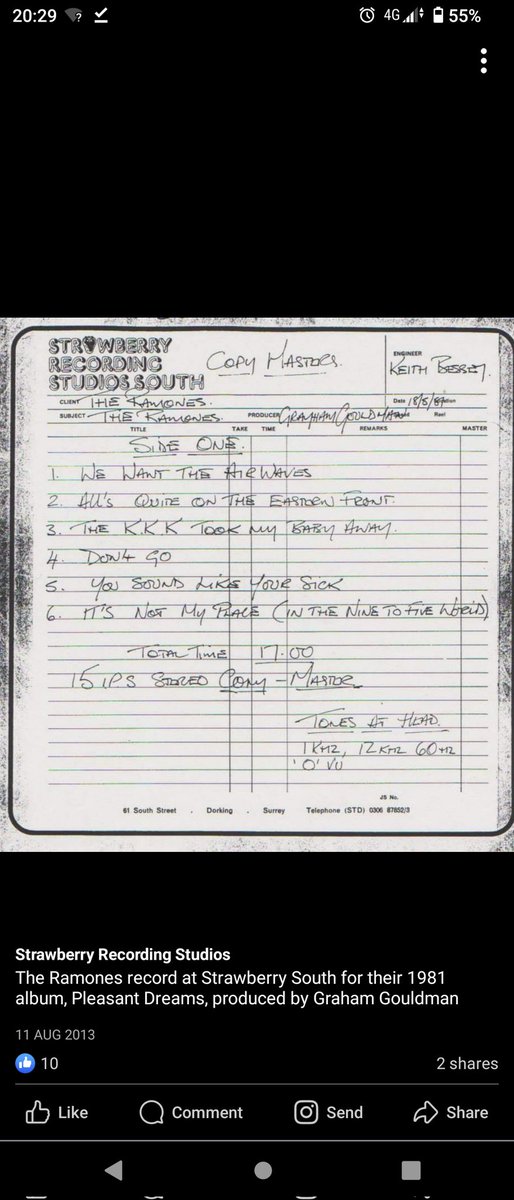 20:29 4G 55%
STRAWBERRY
RECORDING
STUDIOS SOUTH
COPY MASTERS.
ENGINEER
KEITH BESSEY.
CLIENT THE RAMONES.
Date 18/5/81
SUBJECT THE RAMONES. PRODUCER GRAHAM GOULDMAN Reel
TITLE TAKE TIME REMARKS MASTER
SIDE ONE.
1. WE WANT THE AIRWAVES
2. ALL'S QUITE ON THE EASTERN FRONT.
3. THE K.K.K TOOK MY BABY AWAY.
4. DON'T GO
5. YOU SOUND LIKE YOUR SICK
6. IT'S NOT MY PLACE (IN THE NINE TO FIVE WORLD)
TOTAL TIME 17.00
15 IPS STEREO COPY - MASTER
TONES AT HEAD.
1KHZ, 12KHZ 60HZ
'O' VU
JS No.
61 South Street . Dorking . Surrey Telephone (STD) 0306 87852/3
Strawberry Recording Studios
The Ramones record at Strawberry South for their 1981
album, Pleasant Dreams, produced by Graham Gouldman
11 AUG 2013
10 2 shares
Like Comment Send Share